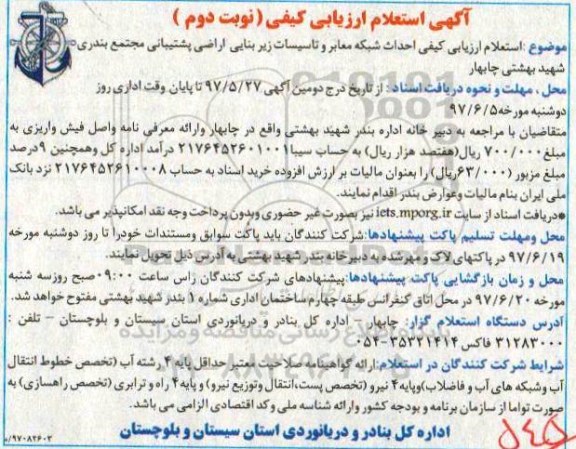 آگهی استعلام ارزیابی کیفی (نوبت دوم)
موضوع :استعلام ارزیابی کیفی احداث شبکه معابر و تاسیسات زیر بنایی اراضی پشتیبانی مجتمع بندری
شهید بهشتی چابهار
محل ، مهلت و نحوه دریافت اسناد : از تاریخ درج دومین آگهی ۹۷/۵/۲۷ تا پایان وقت اداری روز
دوشنبه مورخه ۹۷/۶/۵
متقاضیان با مراجعه به دبیر خانه اداره بندر شهید بهشتی واقع در چابهار وارائه معرفی نامه واصل فیش واریزی به
مبلغ ۷۰۰/۰۰۰ ریال(هفتصد هزار ریال) به حساب سیبا۲۱۷۶۴۵۲۶۰۱۰۰۱ درآمد اداره کل وهمچنین ۹درصد
مبلغ مزبور (۶۳/۰۰۰ریال) را بعنوان مالیات بر ارزش افزوده خرید اسناد به حساب ۲۱۷۶۴۵۲۶۱۰۰۰۸ نزد بانک
ملی ایران بنام مالیات وعوارض بندر اقدام نمایند.
●دریافت اسناد از سایت iets.mporg.ir نیز بصورت غیر حضوری وبدون پرداخت وجه نقد امکانپذیر می باشد.
محل ومهلت تسلیم پاکت پیشنهادها:شرکت کنندگان باید پاکت سوابق ومستندات خودرا تا روز دوشنبه مورخه
۹۷/۶/۱۹ در پاکتهای لاک و مهرشده به دبیرخانه بندر شهید بهشتی به آدرس ذیل تحویل نمایند.
محل و زمان بازگشایی پاکت پیشنهادها:پیشنهادهای شرکت کنندگان راس ساعت ۰۹:۰۰صبح روزسه شنبه
مورخه ۹۷/۶/۲۰ در محل اتاق کنفرانس طبقه چهارم ساختمان اداری شماره ۱ بندر شهید بهشتی مفتوح خواهد شد.
آدرس دستگاه استعلام گزار: چابهار - اداره کل بنادر و دریانوردی استان سیستان و بلوچستان - تلفن :
۳۱۲۸۳۰۰۰ فاکس ۳۵۳۲۱۴۱۴-۰۵۴
شرایط شرکت کنندگان در استعلام:ارائه گواهینامه صلاحیت معتبر حداقل پایه ۴ رشته آب (تخصص خطوط انتقال
آب وشبکه های آب و فاضلاب)وپایه ۴ نیرو (تخصص پست،انتقال وتوزیع نیرو) و پایه ۴ راه و ترابری (تخصص راهسازی) به
صورت تواما از سازمان برنامه و بودجه کشور وارائه شناسه ملی وکد اقتصادی الزامی می باشد.
اداره کل بنادر و دریانوردی استان سیستان و بلوچستان
۹۷۰۸۲۶۰۲/